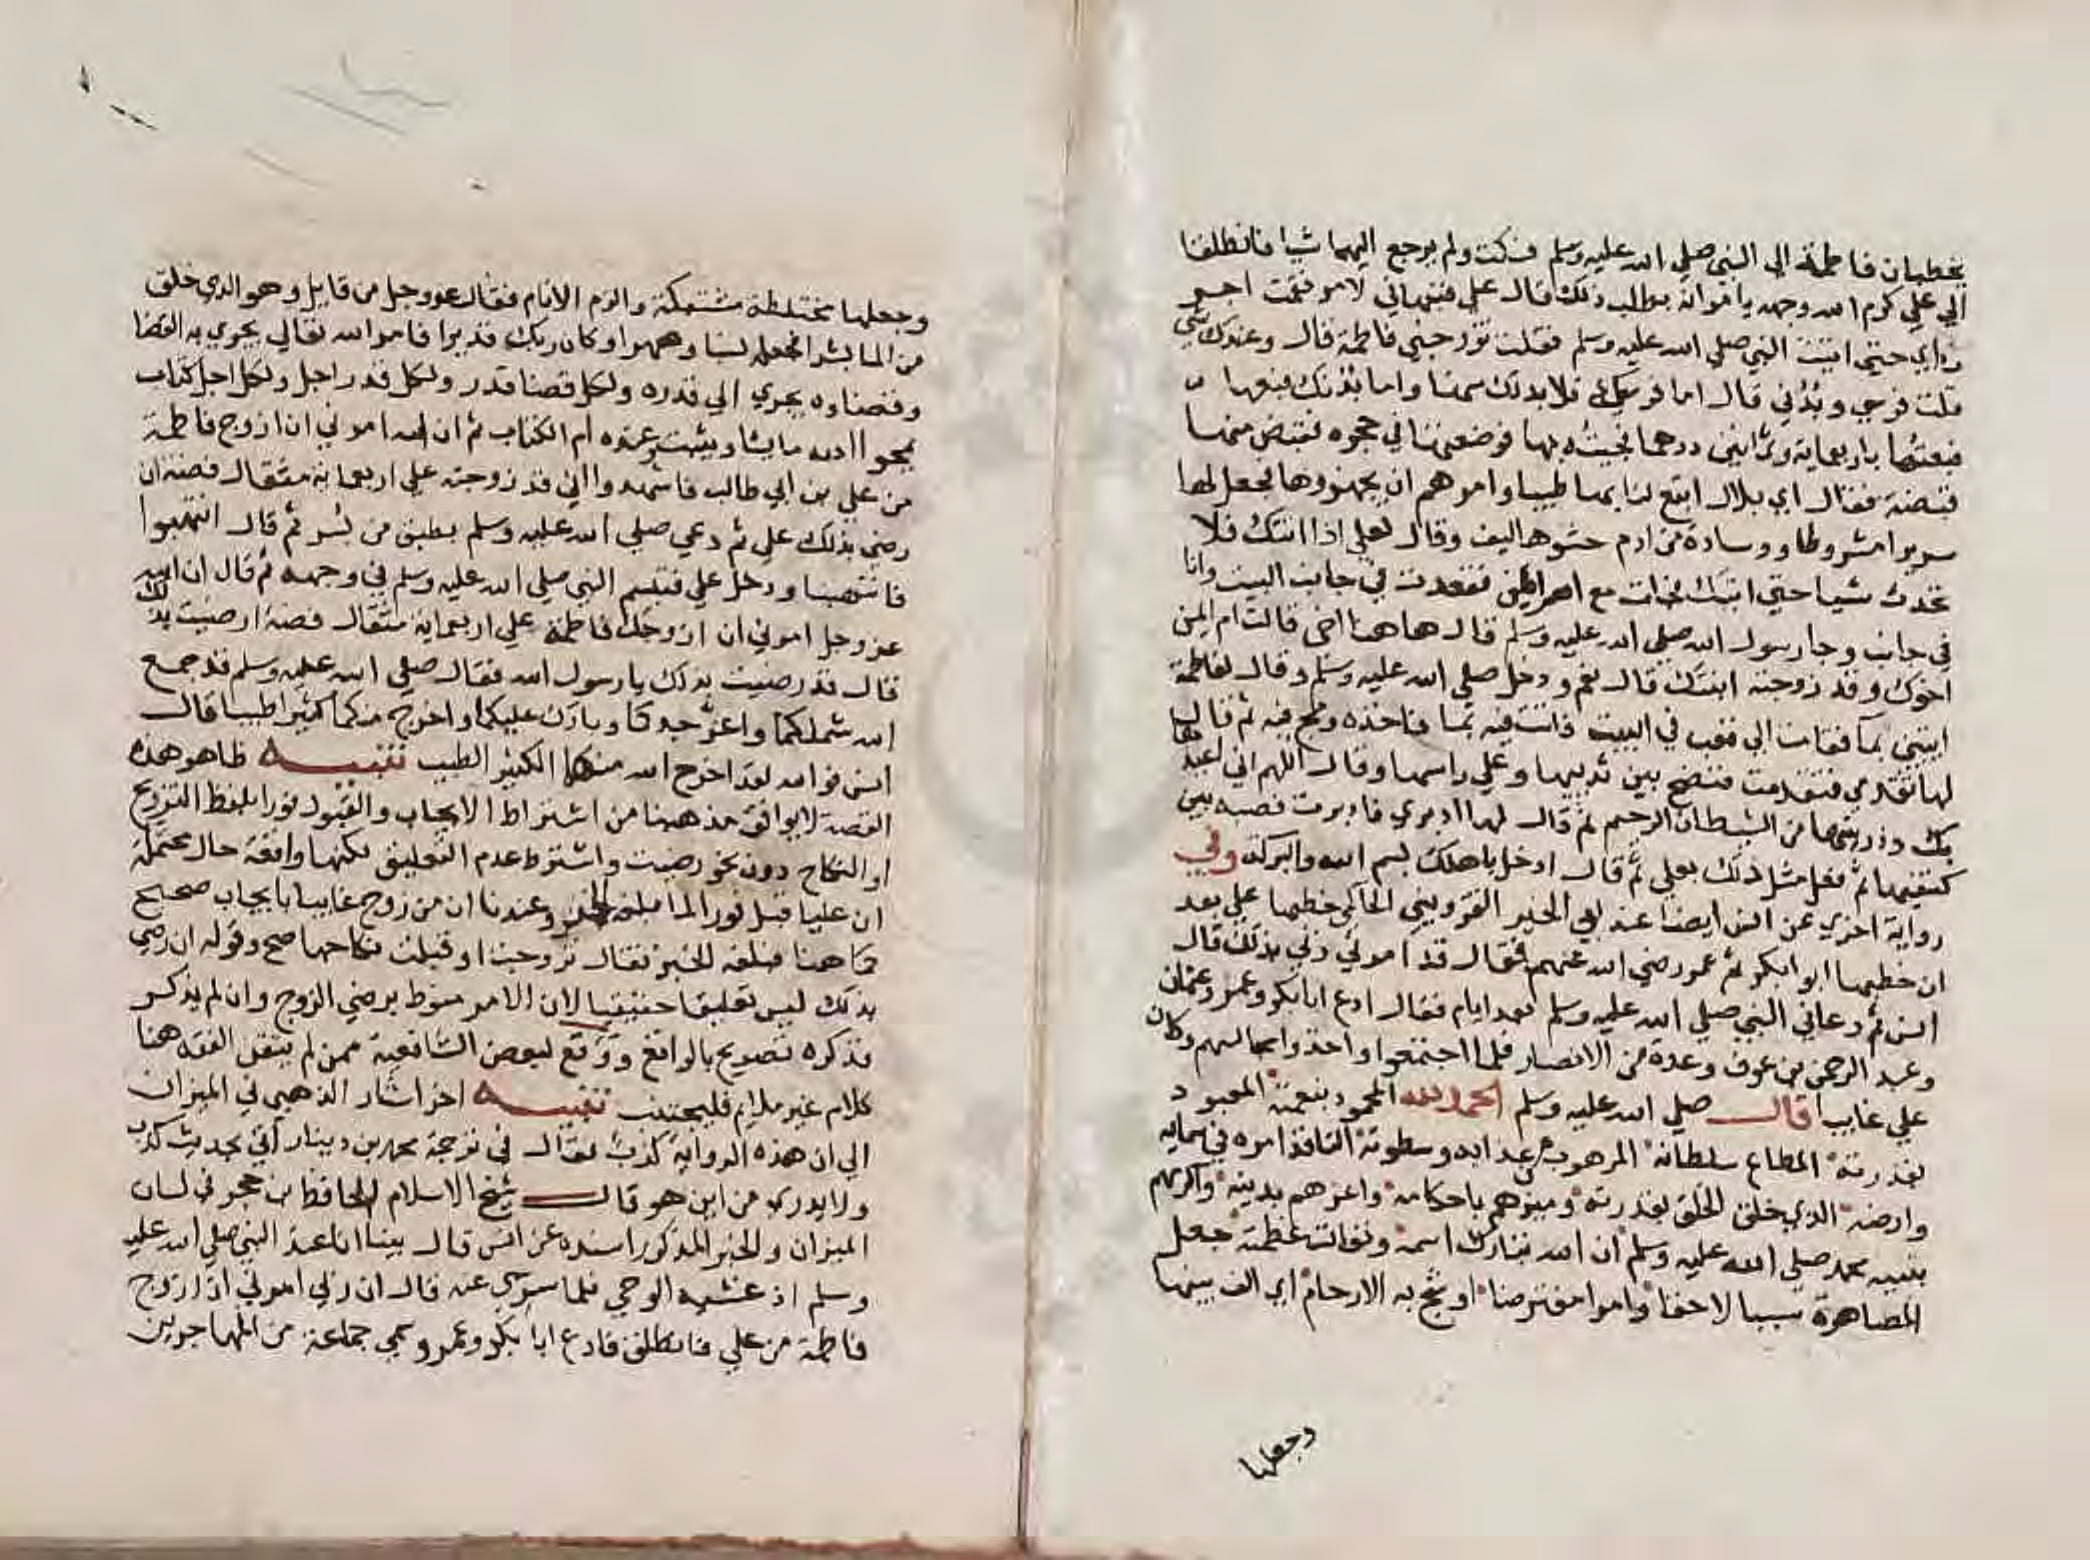 يخطبان فاطمة الي النبي صلي الله عليه وسلم فسكت ولم يرجع اليهما شيا فانطلقا
الي علي كرم الله وجهه يامرانه بطلب ذلك قال علي فنبهاني لامر فقمت اجر
رداي حتي اتيت النبي صلي الله عليه وسلم فقلت تزوجني فاطمة قال وعندك شي
قلت فرسي وبدني قال اما فرسك فلا بد لك منها واما بدنك فبعها
فبعتها باربعماية وثمانين درهما فجيته بها فوضعتها في حجره فقبض منها
قبضة فقال اي بلال ابتع لنا بها طيبا وامرهم ان يجهزوها فجعل لها
سريرا مشروطا ووسادة من ادم حشوها ليف وقال لعلي اذا اتتك فلا
تحدث شيا حتي اتيك فجات مع ام ايمن فقعدت في جانب البيت وانا
في جانب وجا رسول الله صلي الله عليه وسلم قال هاهنا اخي قالت ام ايمن
اخوك وقد زوجته ابنتك قال نعم ودخل صلي الله عليه وسلم وقال لفاطمة
ايتيني بما فقامت الي قعب في البيت فاتت فيه بما فاخذه ومج فيه ثم قال
لها تقدمي فتقدمت فنضح بين ثدييها وعلي راسها وقال اللهم اني اعيذها
بك وذريتها من الشيطان الرجيم ثم قال لها ادبري فادبرت فصبه بين
كتفيها ثم فعل مثل ذلك بعلي ثم قال ادخل باهلك بسم الله والبركة وفي
رواية اخري عن انس ايضا عند ابي الخير القزويني الحاكمي خطبها علي بعد
ان خطبها ابو ابكر ثم عمر رضي الله عنهم فقال قد امرني ربي بذلك قال
انس ثم دعاني النبي صلي الله عليه وسلم بعد ايام فقال ادع ابا بكر وعمر وعثمان
وعبد الرحمن بن عوف وعدة من الانصار فلما اجتمعوا واخذوا مجالسهم وكان
علي غايبا قال صلي الله عليه وسلم الحمد لله المحمود بنعمته المعبود
بقدرته المطاع سلطانه المرهوب من عذابه وسطوته النافذ امره في سمايه
وارضه الذي خلق الخلق بقدرته وميزهم باحكامه واعزهم بدينه واكرمهم
بنبيه محمد صلي الله عليه وسلم ان الله تبارك اسمه وتعالت عظمته جعل
المصاهرة سببا لاحقا وامرا مفترضا اوشج به الارحام اي الف بينها
وجعلها
وجعلها مختلطة مشتبكة والزم الانام فقال عز وجل من قايل وهو الذي خلق
من الما بشرا فجعله نسبا وصهرا وكان ربك قديرا فامر الله تعالي يجري به القضا
وقضاوه يجري الي قدره ولكل قضا قدر ولكل قدر اجل ولكل اجل كتاب
يمحوا الله ما يشا ويثبت وعنده ام الكتاب ثم ان الله امرني ان ازوج فاطمة
من علي بن ابي طالب فاشهدوا اني قد زوجته علي اربعماية مثقال فضة ان
رضي بذلك علي ثم دعي صلي الله عليه وسلم بطبق من بسر ثم قال انتهبوا
فانتهبنا ودخل علي فتبسم النبي صلي الله عليه وسلم في وجهه ثم قال ان الله
عز وجل امرني ان ازوجك فاطمة علي اربعماية مثقال فضة ارضيت بذلك
قال قد رضيت بذلك يا رسول الله فقال صلي الله عليه وسلم قد جمع
الله شملكما واعز جدكا وبارك عليكما واخرج منكما كثيرا طيبا قال
انس فوالله لقد اخرج الله منهما الكثير الطيب تنبيه ظاهر هذه
القصة لا يوافق مذهبنا من اشتراط الايجاب والقبول فورا بلفظ التزويج
او النكاح دون نحو رضيت واشترط عدم التعليق لكنها واقعة حال محتملة
ان عليا قبل فورا لما بلغه الخبر وعندنا ان من زوج غايبا بايجاب صحيح
كما هنا فبلغه الخبر فقال تزوجت او قبلت نكاحها صح وقوله ان رضي
بذلك ليس تعليقا حقيقيا لان الامر منوط برضي الزوج وان لم يذكر
فذكره تصريح بالواقع ووقع لبعض الشافعية ممن لم يتقن الفقه هنا
كلام غير ملايم فليجتنب تنبيه اخر اشار الذهبي في الميزان
الي ان هذه الرواية كذب فقال في ترجمة محمد بن دينار اتي بحديث كذب
ولا يدري من اين هو قال شيخ الاسلام الحافظ ابن حجر في لسان
الميزان والخبر المذكور اسنده عن انس قال بينا انا عند النبي صلي الله عليه
وسلم اذ غشيه الوحي فلما سري عنه قال ان ربي امرني ان ازوج
فاطمة من علي فانطلق فادع ابا بكر وعمر وسمي جماعة من المهاجرين